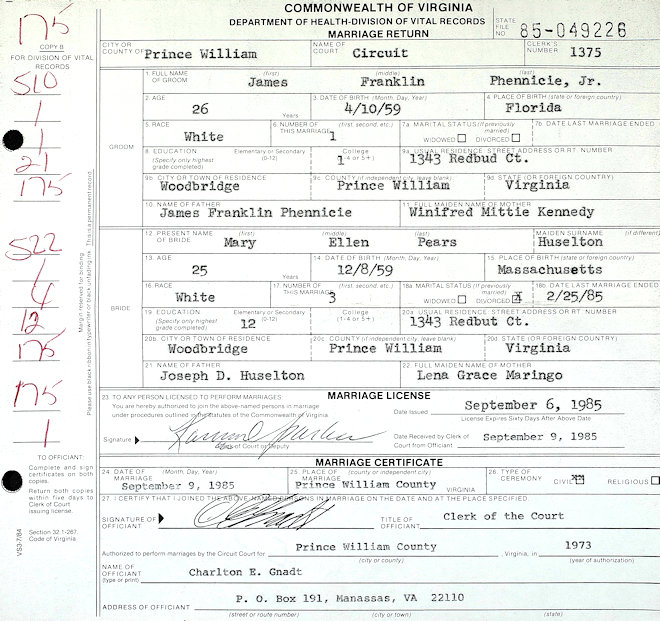 COMMONWEALTH OF VIRGINIA
DEPARTMENT OF HEALTH-DIVISION OF VITAL RECORDS
MARRIAGE RETURN
STATE FILE NO 85-049226
175
COPY B
FOR DIVISION OF VITAL RECORDS
510
1
1
21
175
522
1
4
12
175
175
1
CITY OR COUNTY OF Prince William
NAME OF COURT Circuit
CLERK'S NUMBER 1375
GROOM
1. FULL NAME OF GROOM (first) James (middle) Franklin (last) Phennicie, Jr.
2. AGE 26 Years
3. DATE OF BIRTH (Month, Day, Year) 4/10/59
4. PLACE OF BIRTH (state or foreign country) Florida
5. RACE White
6. NUMBER OF THIS MARRIAGE (first, second, etc.) 1
7a MARITAL STATUS (if previously married) WIDOWED DIVORCED
7b. DATE LAST MARRIAGE ENDED
8. EDUCATION (Specify only highest grade completed) Elementary or Secondary (0-12) College (1-4 or 5+) 1
9a. USUAL RESIDENCE STREET ADDRESS OR RT. NUMBER 1343 Redbud Ct.
9b. CITY OR TOWN OF RESIDENCE Woodbridge
9c. COUNTY (if independent city, leave blank) Prince William
9d STATE (OR FOREIGN COUNTRY) Virginia
10. NAME OF FATHER James Franklin Phennicie
11. FULL MAIDEN NAME OF MOTHER Winifred Mittie Kennedy
BRIDE
12. PRESENT NAME OF BRIDE (first) Mary (middle) Ellen (last) Pears MAIDEN SURNAME (if different) Huselton
13. AGE 25 Years
14 DATE OF BIRTH (Month, Day, Year) 12/8/59
15. PLACE OF BIRTH (state or foreign country) Massachusetts
16. RACE White
17. NUMBER OF THIS MARRIAGE (first, second, etc.) 3
18a. MARITAL STATUS (if previously married) WIDOWED DIVORCED X
18b. DATE LAST MARRIAGE ENDED 2/25/85
19 EDUCATION (Specify only highest grade completed) Elementary or Secondary (0-12) 12 College (1-4 or 5+)
20a. USUAL RESIDENCE STREET ADDRESS OR RT. NUMBER 1343 Redbut Ct.
20b. CITY OR TOWN OF RESIDENCE Woodbridge
20c COUNTY (if independent city, leave blank) Prince William
20d STATE (OR FOREIGN COUNTRY) Virginia
21. NAME OF FATHER Joseph D. Huselton
22. FULL MAIDEN NAME OF MOTHER Lena Grace Maringo
Margin reserved for binding
Please use black ribbon in typewriter or black unfading ink. This is a permanent record.
23 TO ANY PERSON LICENSED TO PERFORM MARRIAGES
MARRIAGE LICENSE
You are hereby authorized to join the above-named persons in marriage
under procedures outlined in the statutes of the Commonwealth of Virginia.
Date Issued September 6, 1985
License Expires Sixty Days After Above Date
Signature
Clerk of Court or Deputy
Date Received by Clerk of Court from Official September 9, 1985
MARRIAGE CERTIFICATE
24 DATE OF MARRIAGE (Month, Day, Year) September 9, 1985
25. PLACE OF MARRIAGE (county or independent city) Prince William County VIRGINIA
26. TYPE OF CEREMONY CIVIL XX RELIGIOUS
27. I CERTIFY THAT I JOINED THE ABOVE-NAMED PERSONS IN MARRIAGE ON THE DATE AND AT THE PLACE SPECIFIED.
SIGNATURE OF OFFICIANT
TITLE OF OFFICIANT Clerk of the Court
Authorized to perform marriages by the Circuit Court for Prince William County Virginia, in 1973
(city or county) (year of authorization)
NAME OF OFFICIANT (type or print) Charlton E. Gnadt
ADDRESS OF OFFICIANT P. O. Box 191, Manassas, VA 22110
(street or route number) (city or town) (state)
TO OFFICIANT:
Complete and sign
certificates on both
copies.
Return both copies
within five days to
Clerk of Court
issuing license.
Section 32.1-267:
Code of Virginia
VS3-7/84